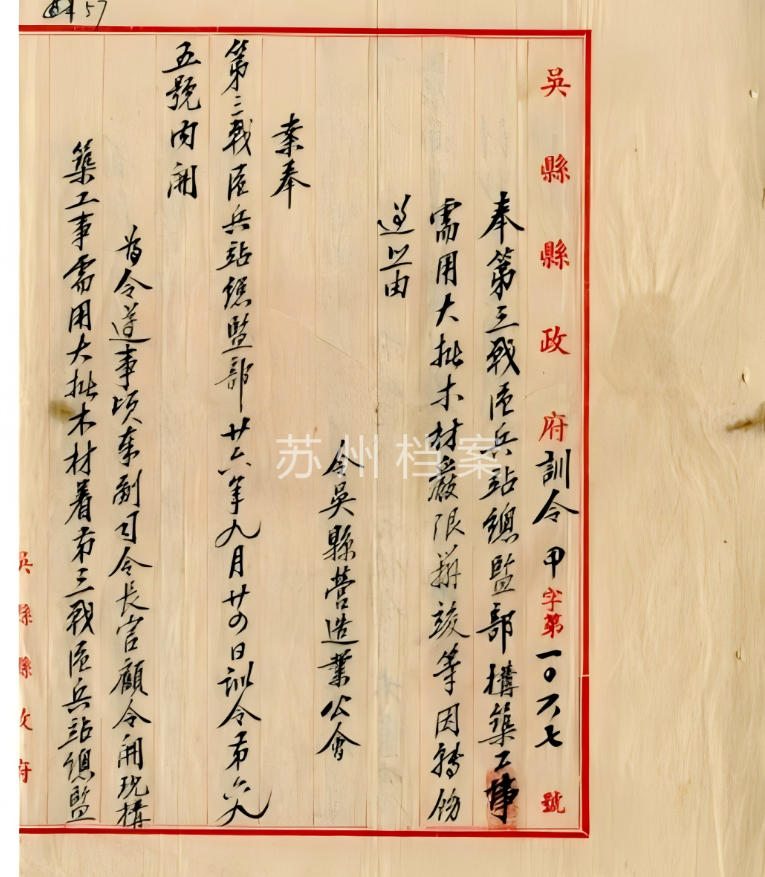 57
吳縣縣政府訓令甲字第一〇六七號
奉第三戰區兵站總監部構築工事
需用大批木材嚴限辦竣等因轉飭
遵由
令吳縣營造業公會
案奉
第三戰區兵站總監部廿六年九月廿四日訓令第六八
五號內開
為令遵事頃奉副司令長官顧令開現構
築工事需用大批木材着第三戰區兵站總監
吳縣縣政府
苏州档案